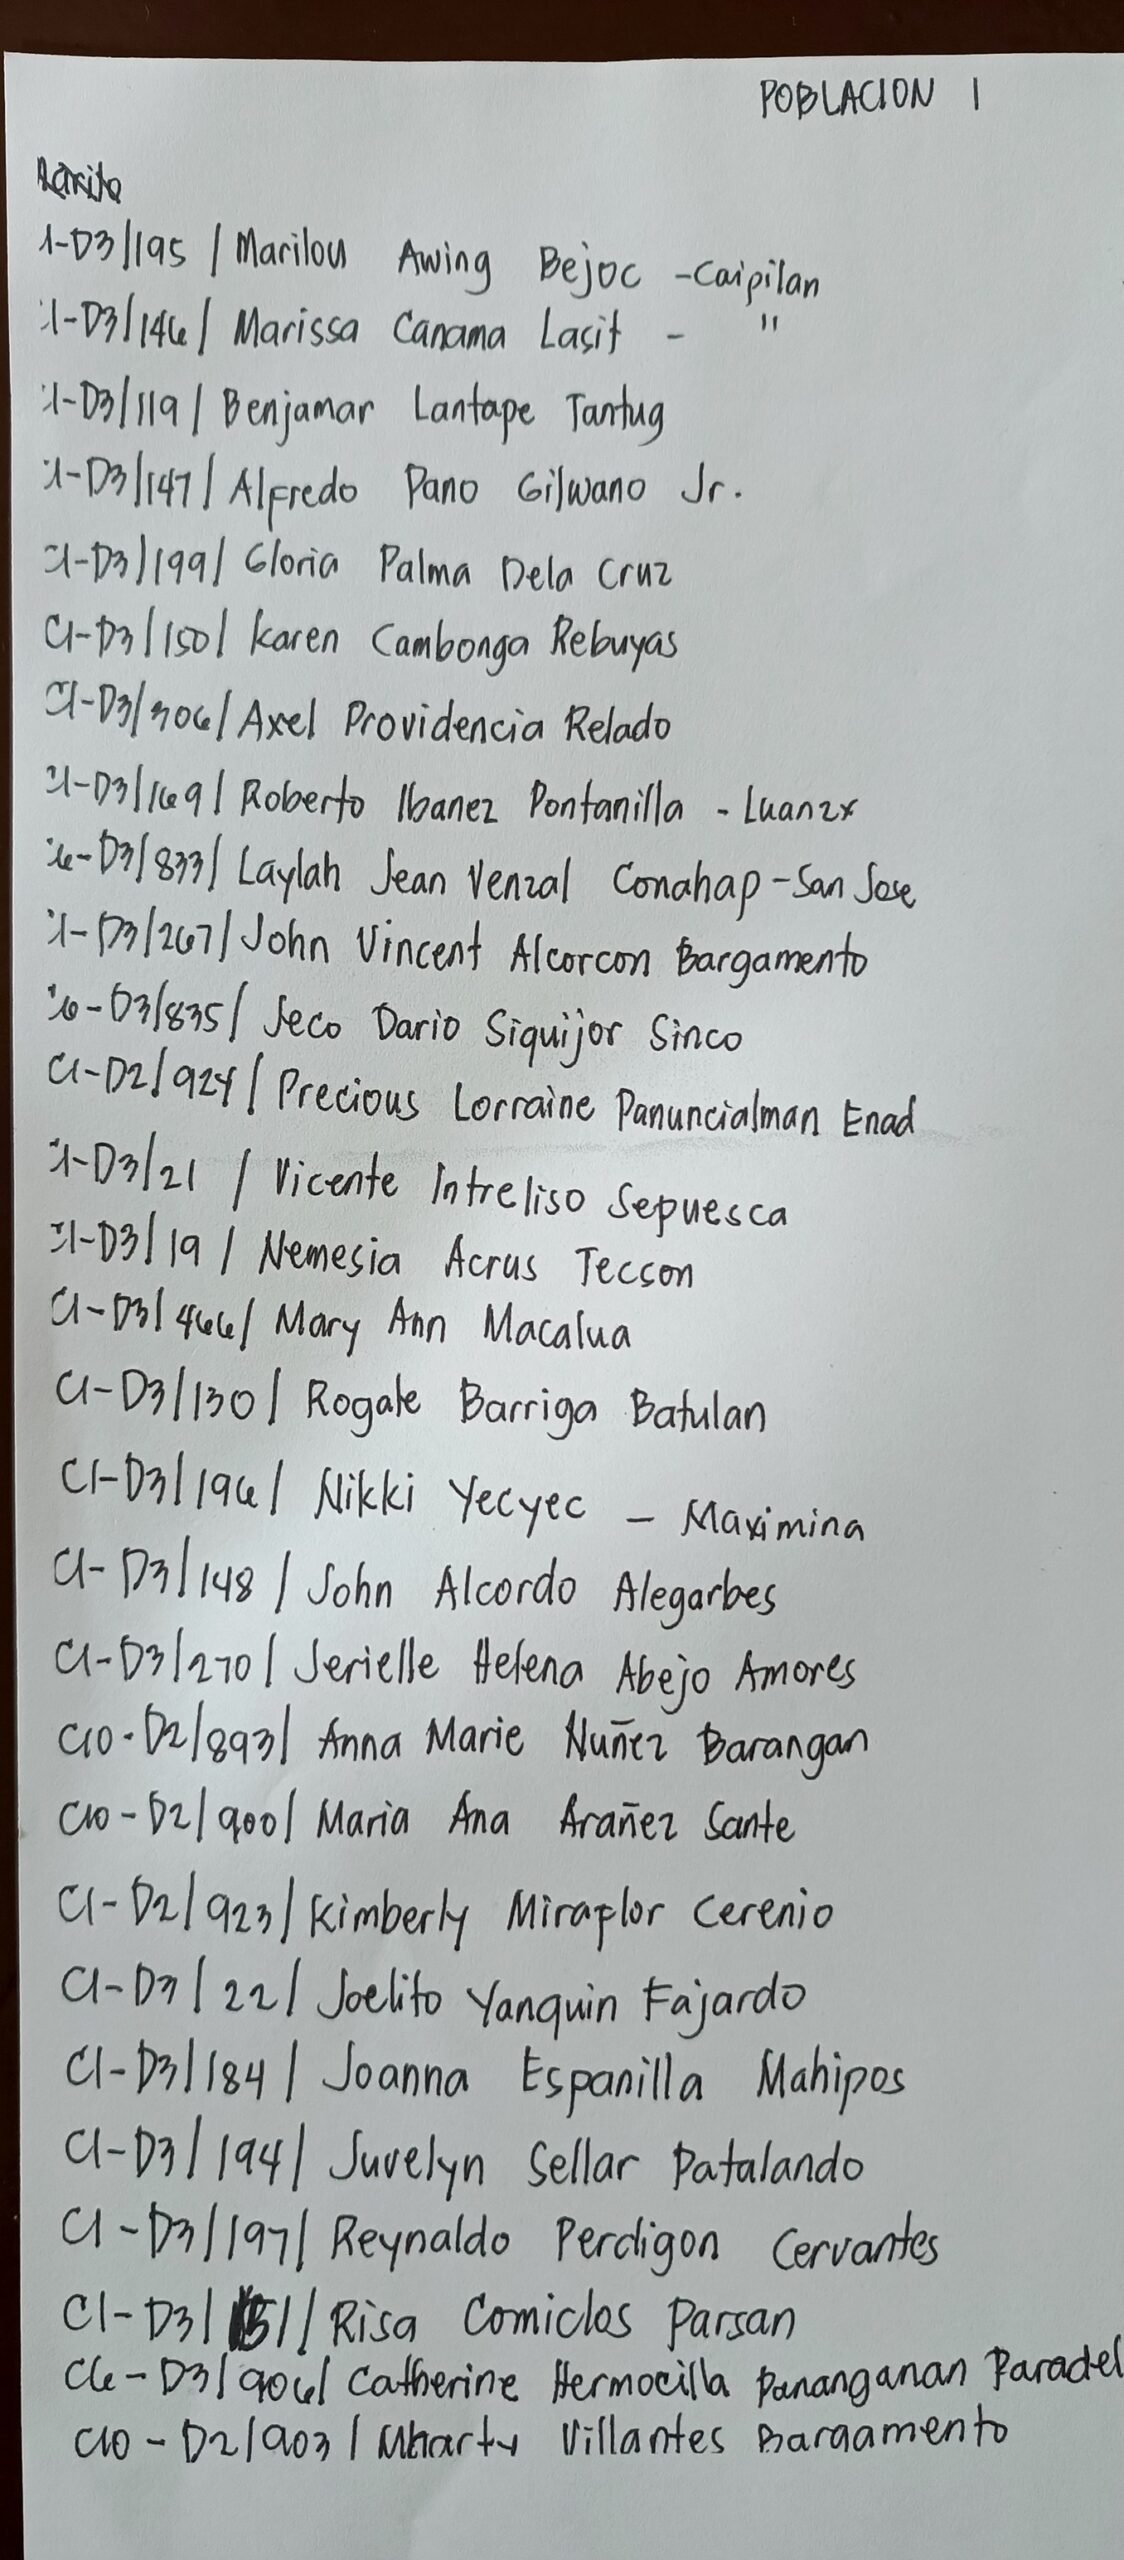 POBLACION 1
1-D3/195 / Marilou Awing Bejoc - Caipilan
1-D3/146/ Marissa Canama Lasit - "
1-D3/119/ Benjamar Lantape Tantug
1-D3/147/ Alfredo Pano Gilwano Jr.
C1-D3/199/ Gloria Palma Dela Cruz
C1-D3/150/ Karen Cambonga Rebuyas
C1-D3/306/ Axel Providencia Relado
C1-D3/169/ Roberto Ibanez Pontanilla - Luanzx
6-D3/833/ Laylah Jean Venzal Conahap - San Jose
1-D3/267/ John Vincent Alcorcon Bargamento
6-D3/835/ Jeco Dario Siquijor Sinco
C1-D2/924/ Precious Lorraine Panuncialman Enad
1-D3/21 / Vicente Intreliso Sepuesca
C1-D3/19 / Nemesia Acrus Tecson
C1-D3/466/ Mary Ann Macalua
C1-D3/130/ Rogate Barriga Batulan
C1-D3/196/ Nikki Yecyec - Maximina
C1-D3/148 / John Alcordo Alegarbes
C1-D3/270/ Jerielle Helena Abejo Amores
C10-D2/893/ Anna Marie Nuñez Barangan
C10-D2/900/ Maria Ana Arañez Sante
C1-D2/923/ Kimberly Miraflor Cerenio
C1-D3/22/ Joelito Yanquin Fajardo
C1-D3/184/ Joanna Espanilla Mahipos
C1-D3/194/ Juvelyn Sellar Patalando
C1-D3/197/ Reynaldo Perdigon Cervantes
C1-D3/ / Risa Comiclos Parsan
C6-D3/906/ Catherine Hermocilla Pananganan Paradel
C10-D2/903/ Villantes Bargamento